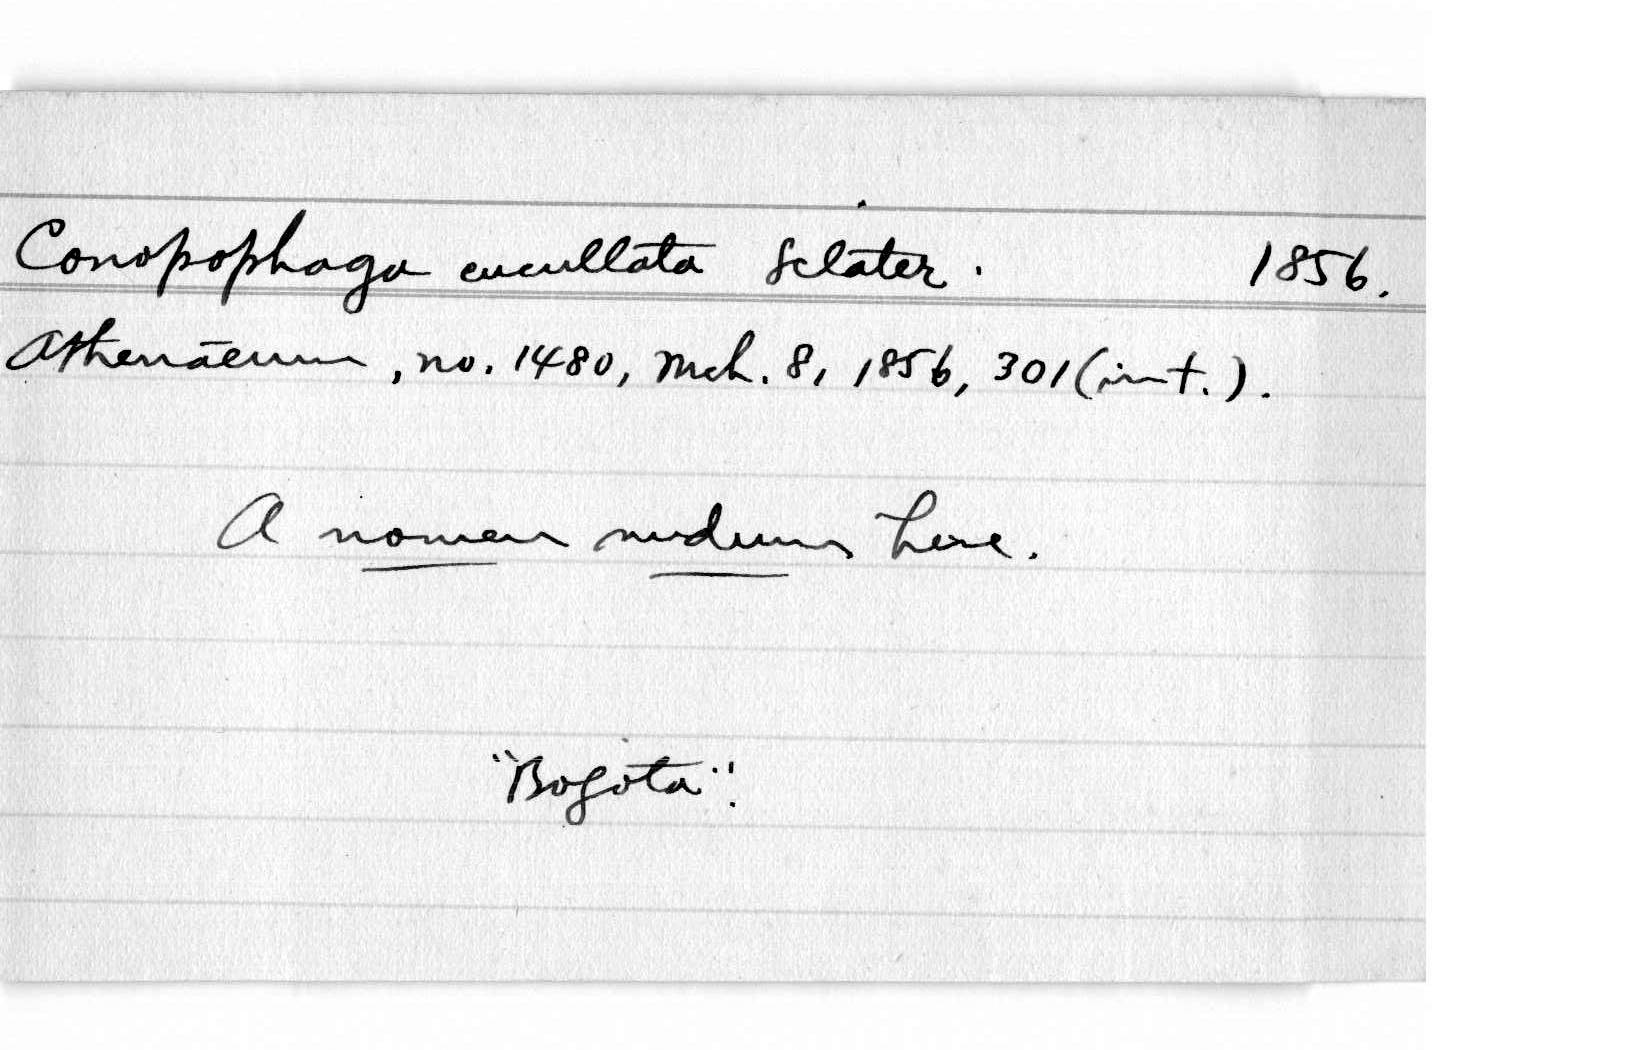 Conopophaga cucullata Sclater. 1856.
Athenaeum, no. 1480, Mch. 8, 1856, 301 (int.).
A nomen nudum here.
"Bogota".